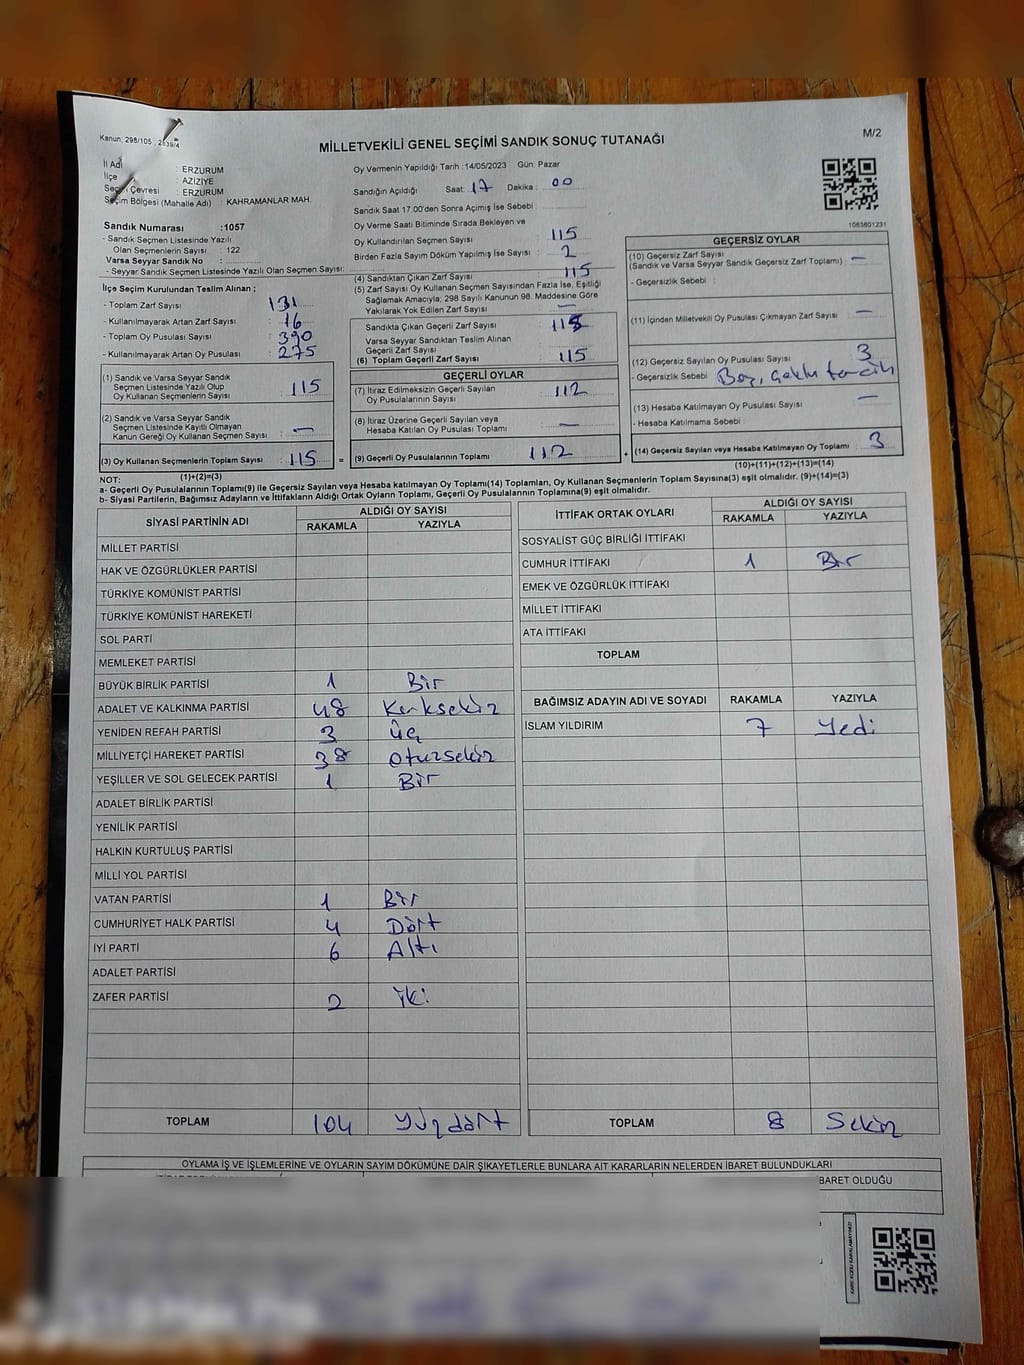 Kanun: 298/105
M/2
MİLLETVEKİLİ GENEL SEÇİMİ SANDIK SONUÇ TUTANAĞI
İl Adı : ERZURUM
İlçe : AZİZİYE
Seçim Çevresi : ERZURUM
Seçim Bölgesi (Mahalle Adı) KAHRAMANLAR MAH.
Oy Vermenin Yapıldığı Tarih :14/05/2023 Gün: Pazar
Sandığın Açıldığı Saat: 17 Dakika : 00
Sandık Saat 17.00'den Sonra Açılmış İse Sebebi :
Oy Verme Saati Bitiminde Sırada Bekleyen ve
Oy Kullandırılan Seçmen Sayısı : 115
Birden Fazla Sayım Döküm Yapılmış İse Sayısı : 2
(4) Sandıktan Çıkan Zarf Sayısı : 115
(5) Zarf Sayısı Oy Kullanan Seçmen Sayısından Fazla İse, Eşitliği
Sağlamak Amacıyla; 298 Sayılı Kanunun 98. Maddesine Göre
Yakılarak Yok Edilen Zarf Sayısı : —
1063601231
Sandık Numarası :1057
- Sandık Seçmen Listesinde Yazılı
Olan Seçmenlerin Sayısı : 122
Varsa Seyyar Sandık No :
- Seyyar Sandık Seçmen Listesinde Yazılı Olan Seçmen Sayısı:
İlçe Seçim Kurulundan Teslim Alınan ;
- Toplam Zarf Sayısı : 131
- Kullanılmayarak Artan Zarf Sayısı : 16
- Toplam Oy Pusulası Sayısı : 390
- Kullanılmayarak Artan Oy Pusulası : 275
(1) Sandık ve Varsa Seyyar Sandık
Seçmen Listesinde Yazılı Olup
Oy Kullanan Seçmenlerin Sayısı : 115
(2) Sandık ve Varsa Seyyar Sandık
Seçmen Listesinde Kayıtlı Olmayan
Kanun Gereği Oy Kullanan Seçmen Sayısı : —
(3) Oy Kullanan Seçmenlerin Toplam Sayısı : 115 =
(1)+(2)=(3)
Sandıkta Çıkan Geçerli Zarf Sayısı : 115
Varsa Seyyar Sandıktan Teslim Alınan
Geçerli Zarf Sayısı
(6) Toplam Geçerli Zarf Sayısı : 115
GEÇERLİ OYLAR
(7) İtiraz Edilmeksizin Geçerli Sayılan
Oy Pusulalarının Sayısı : 112
(8) İtiraz Üzerine Geçerli Sayılan veya
Hesaba Katılan Oy Pusulası Toplamı : —
(9) Geçerli Oy Pusulalarının Toplamı : 112 +
GEÇERSİZ OYLAR
(10) Geçersiz Zarf Sayısı
(Sandık ve Varsa Seyyar Sandık Geçersiz Zarf Toplamı) : —
- Geçersizlik Sebebi :
(11) İçinden Milletvekili Oy Pusulası Çıkmayan Zarf Sayısı : —
(12) Geçersiz Sayılan Oy Pusulası Sayısı : 3
- Geçersizlik Sebebi : Boş, Çoklu tercih
(13) Hesaba Katılmayan Oy Pusulası Sayısı : —
- Hesaba Katılmama Sebebi :
(14) Geçersiz Sayılan veya Hesaba Katılmayan Oy Toplamı : 3
(10)+(11)+(12)+(13)=(14)
NOT:
a- Geçerli Oy Pusulalarının Toplamı(9) ile Geçersiz Sayılan veya Hesaba Katılmayan Oy Toplamı(14) Toplamları, Oy Kullanan Seçmenlerin Toplam Sayısına(3) eşit olmalıdır. (9)+(14)=(3)
b- Siyasi Partilerin, Bağımsız Adayların ve İttifakların Aldığı Ortak Oyların Toplamı, Geçerli Oy Pusulalarının Toplamına(9) eşit olmalıdır.
SİYASİ PARTİNİN ADI ALDIĞI OY SAYISI
RAKAMLA YAZIYLA
MİLLET PARTİSİ
HAK VE ÖZGÜRLÜKLER PARTİSİ
TÜRKİYE KOMÜNİST PARTİSİ
TÜRKİYE KOMÜNİST HAREKETİ
SOL PARTİ
MEMLEKET PARTİSİ
BÜYÜK BİRLİK PARTİSİ 1 Bir
ADALET VE KALKINMA PARTİSİ 48 Kırksekiz
YENİDEN REFAH PARTİSİ 3 üç
MİLLİYETÇİ HAREKET PARTİSİ 38 otuzsekiz
YEŞİLLER VE SOL GELECEK PARTİSİ 1 Bir
ADALET BİRLİK PARTİSİ
YENİLİK PARTİSİ
HALKIN KURTULUŞ PARTİSİ
MİLLİ YOL PARTİSİ
VATAN PARTİSİ 1 Bir
CUMHURİYET HALK PARTİSİ 4 Dört
İYİ PARTİ 6 Altı
ADALET PARTİSİ
ZAFER PARTİSİ 2 iki
TOPLAM 104 Yüzdört
İTTİFAK ORTAK OYLARI ALDIĞI OY SAYISI
RAKAMLA YAZIYLA
SOSYALİST GÜÇ BİRLİĞİ İTTİFAKI
CUMHUR İTTİFAKI 1 Bir
EMEK VE ÖZGÜRLÜK İTTİFAKI
MİLLET İTTİFAKI
ATA İTTİFAKI
TOPLAM
BAĞIMSIZ ADAYIN ADI VE SOYADI RAKAMLA YAZIYLA
İSLAM YILDIRIM 7 Yedi
TOPLAM 8 Sekiz
OYLAMA İŞ VE İŞLEMLERİNE VE OYLARIN SAYIM DÖKÜMÜNE DAİR ŞİKAYETLERLE BUNLARA AİT KARARLARIN NELERDEN İBARET BULUNDUKLARI
BARET OLDUĞU